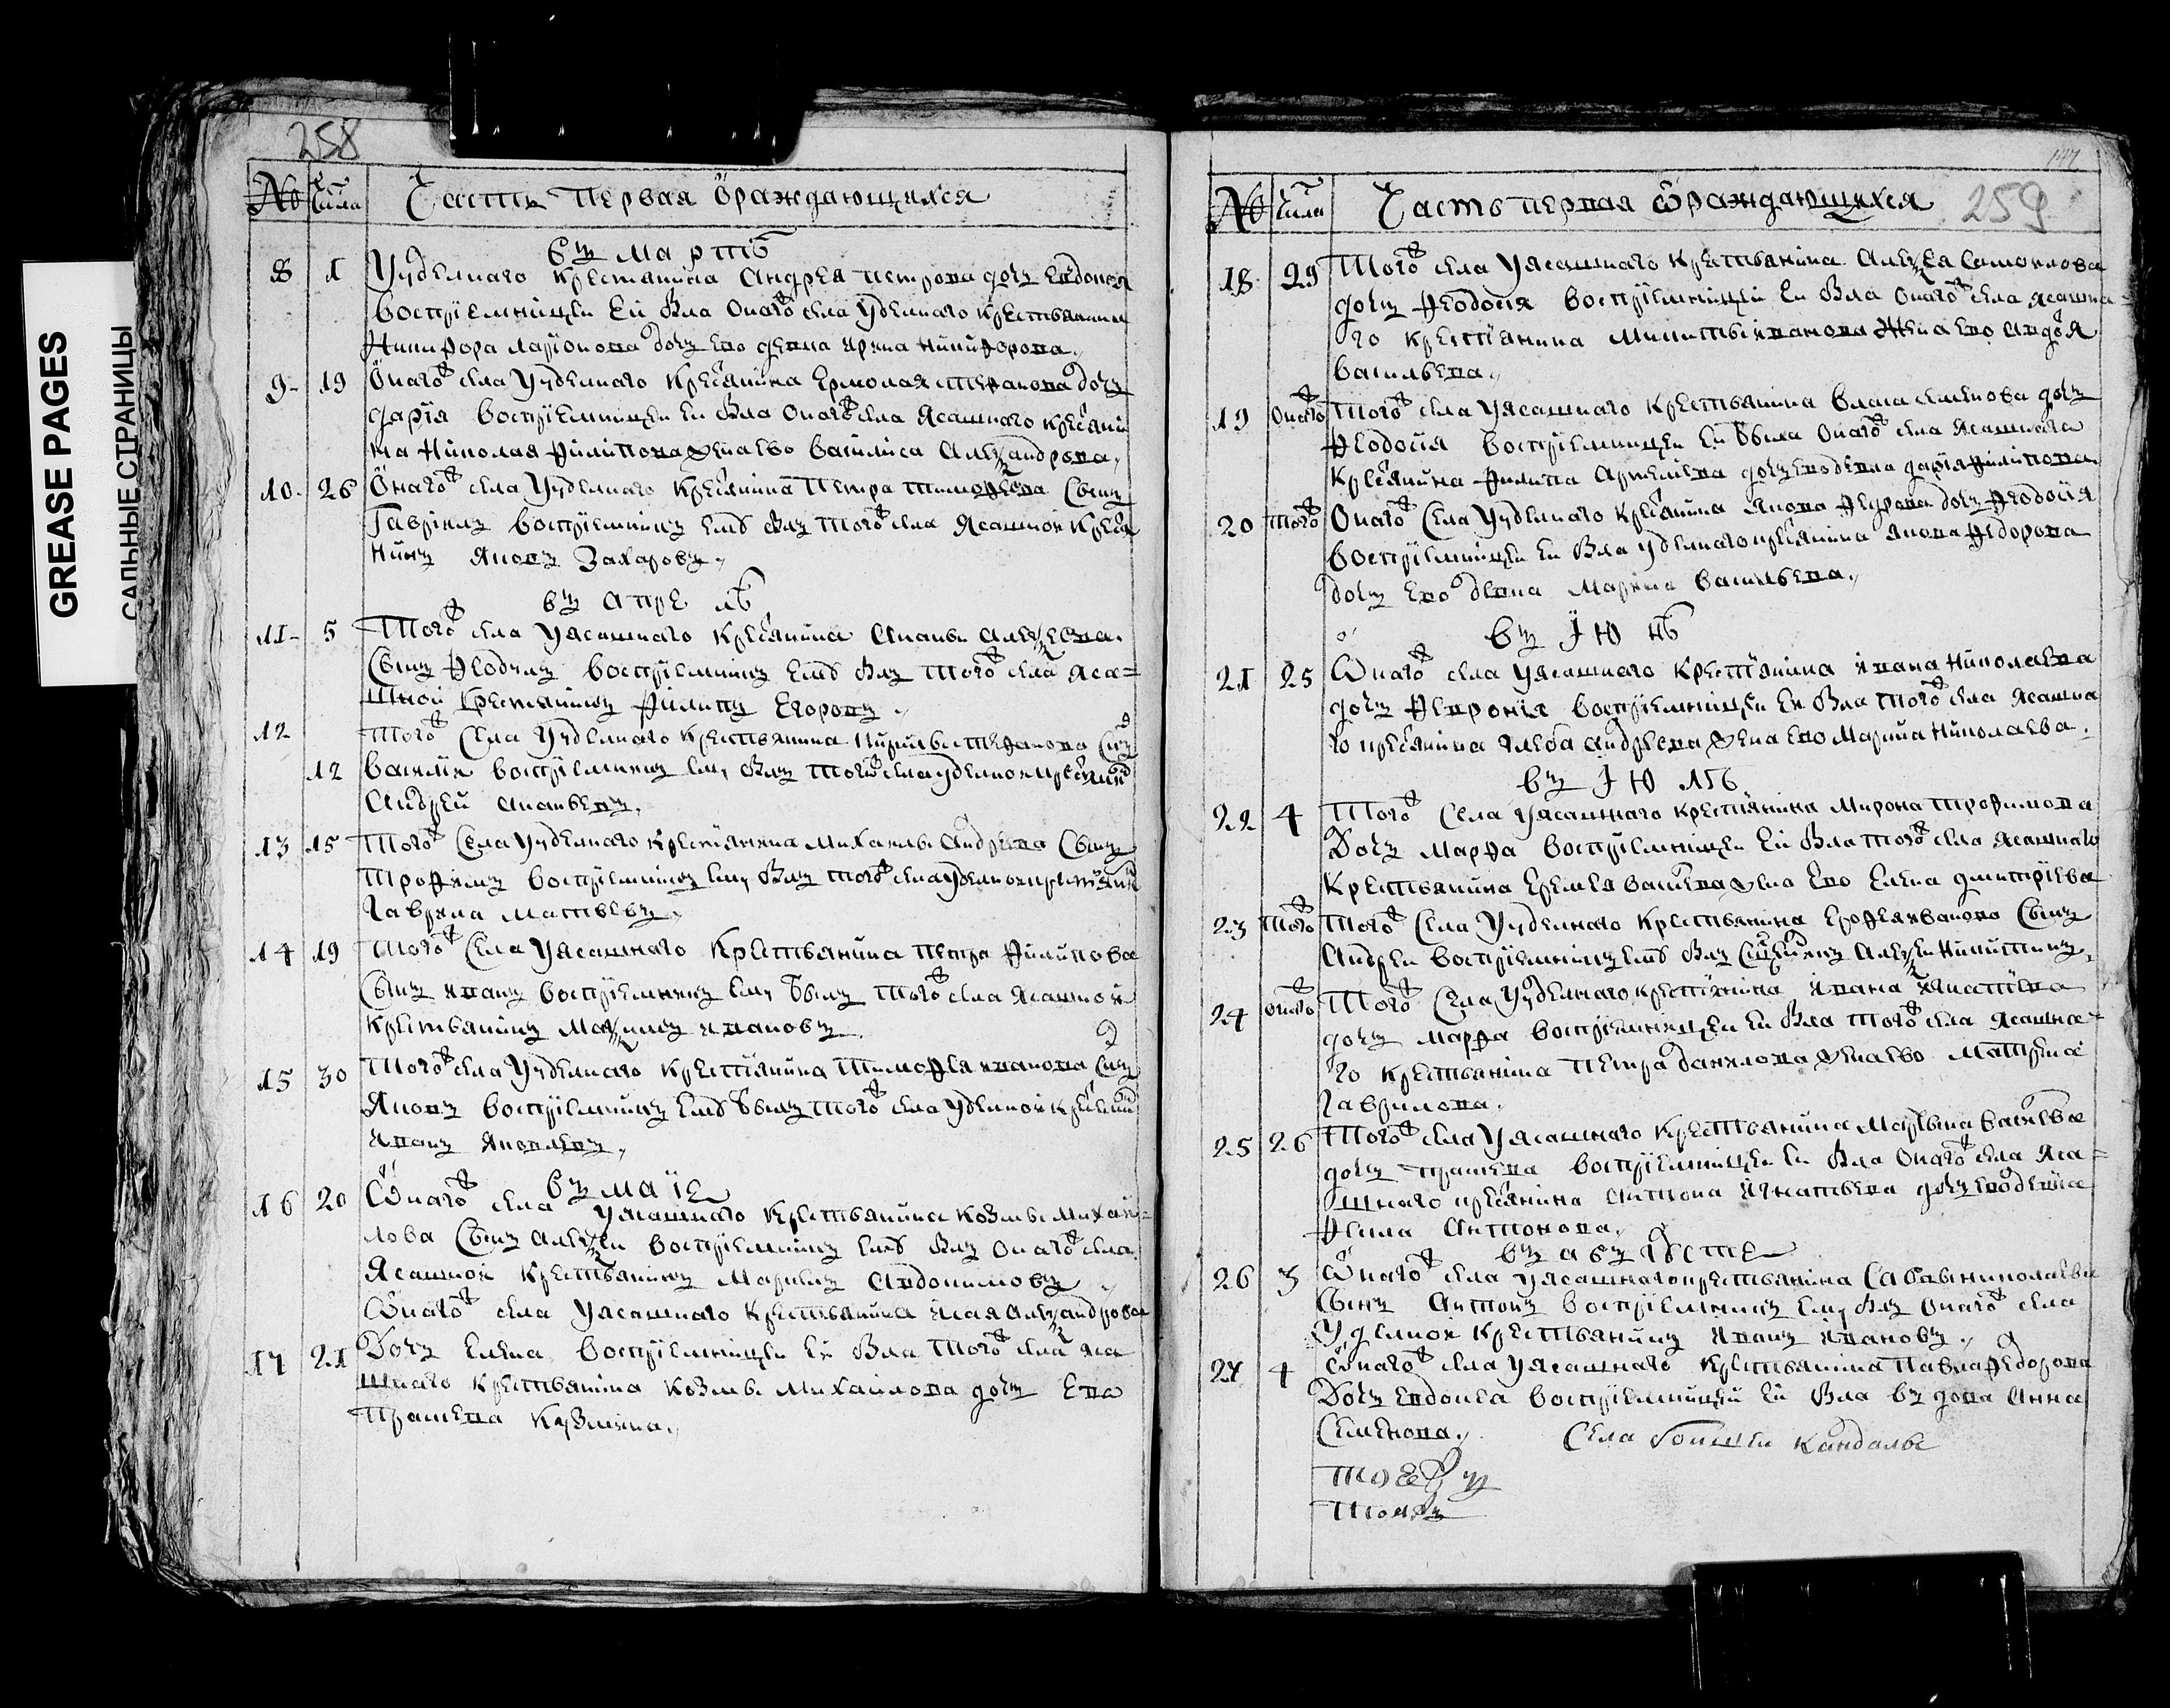 GREASE PAGES
САЛЬНЫЕ СТРАНИЦЫ
258
№ числа Часть первая ораждающихся
въ мартѣ
8 1 Уудѣлнаго крестянина Андрея петрова дочь Евдокея
воспріемницеи Еи была онагоⷤ села Удѣлнаго крестьянина
Никифора ларионова дочь Ево девка ирина никифорова,
9 19 Онагоⷤ села Уудѣлнаго Кресянина Ермолая степанова дочь
дарія воспріемницеи Еи была онагоⷤ села Ясашнаго кресяни
на Николая Филипова жена ево василиса Александрова,
10 26 Онагоⷤ села Уудѣлнаго Кресянина Петра тимофеева Сынъ
Гавріилъ воспріемникъ Емѹ былъ тогоⷤ села Ясашнои Крестя
нинъ Яковъ Захаровъ,
въ апрелѣ
11 5 Тогоⷤ села Уясашнаго Кресянина Ананьи Алексѣева
Сынъ Феодулъ воспріемникъ Емѹ былъ тогоⷤ села Яса=
шнои Крестянинъ Филипъ Егоровъ
12 Тогоⷤ Села Уудѣлнаго крестьянина Кирилы степанова Сынъ
12 василіи воспріемникъ Емѹ былъ тогоⷤ села удѣлнои кресянинъ
Андреи ананьевъ,
13 15 Тогоⷤ Села Уудѣлнаго Крестянина Михаилы Андреева Сынъ
Трофимъ воспріемникъ Емѹ былъ тогоⷤ села удѣлнои крестянинъ
гаврила матвѣевъ,
14 19 Тогоⷤ Села Уясашнаго Крестьянина петра Филипова
Сынъ иванъ воспріемникъ Емѹ былъ тогоⷤ села Ясашнои
Крестьянинъ Максимъ ивановъ
15 30 Тогоⷤ села Уудѣлнаго Крестіянина Тимофея иванова Сынъ
Яковъ воспріемникъ Емѹ былъ тогоⷤ села Удѣлнои Кресянинъ
Иванъ Яковлевъ,
въ маіе
16 20 Онагоⷤ села Уясашнаго Крестьянина козмы Михаи=
лова Сынъ Алексеи воспріемникъ Емѹ былъ онагоⷤ села
Ясашнои Крестьянинъ Маркелъ Авдокимовъ
Онагоⷤ села Уясашнаго Крестьянина Исая Александрова
17 21 Дочь Елена воспріемницеи Еи была тогоⷤ села Яса
шнаго крестьянина козмы Михаилова дочь Ева
Прасковя Кузмина,
147
№ числа Часть первая ораждающихся 259
18 29 Тогоⷤ села Уясашнаго Крестьянина Алексѣя Самоилова
дочь Феодосія воспріемницеи Еи была онагоⷤ села ясашна=
го крестіянина Микиты иванова жена Ево Авдотя
васильева,
19 онагоⷤ Тогоⷤ села Уясашнаго крестьянина власа семенова дочь
Феодосія воспріемницеи Еи была онагоⷤ села Ясашнаго
Кресянина Филипа Артемева дочь Ево девка дарія Филипова
20 тогоⷤ Онагоⷤ Села Уудѣлнаго Кресянина Якова Федрова дочь Феодосія
воспріемницеи Еи была удѣлнаго кресянина якова Федорова
дочь Ево девка Марина васильева,
въ Іюнѣ
21 25 Онагоⷤ села Уясашнаго Крестіянина Ивана Николаева
дочь Февронія воспріемницеи Еи была тогоⷤ села Ясашна
го кресянина Глеба Андреева жена Ево Марина Николаева.
въ Іюлѣ
22 4 Тогоⷤ Села Уясашнаго крестіянина Мирона трофимова
Дочь Марфа воспріемницеи Еи была тогоⷤ села Ясашнаго
Крестьянина Еремея васиева жена Ево Елена дмитріева
23 тогоⷤ Тогоⷤ Села Уудѣлнаго Крестьянина Ерофея иванова Сынъ
Андреи воспріемникъ Емѹ былъ Сщенникъ Алексеи Никитинъ,
24 онагоⷤ Тогоⷤ Села Уудѣлнаго крестіянина Ивана Игнатіева
дочь Марфа воспріемницеи Еи была тогоⷤ села Ясашна=
го крестьянина петра данилова жена ево Матрена
гаврилова,
25 26 Тогоⷤ села Уясашнаго Крестьянина Мартына васиева
дочь прасковя воспріемницеи Еи была онагоⷤ села Яса=
шнаго кресянина Антона Игнатьева дочь Ево девка
Фекла Антонова,
въ августе
26 3 Онагоⷤ села Уясашнаго крестьянина Савы николаева
Сынъ Антонъ воспріемникъ Емѹ былъ онагоⷤ села
Удѣлнои Крестьянинъ Иванъ Ивановъ,
27 4 Онагоⷤ села Уясашнаго Крестьянина Павла федорова
Дочь Евдокеа воспріемницеи Еи была вдова Анна
Семенова, Села Кандалы